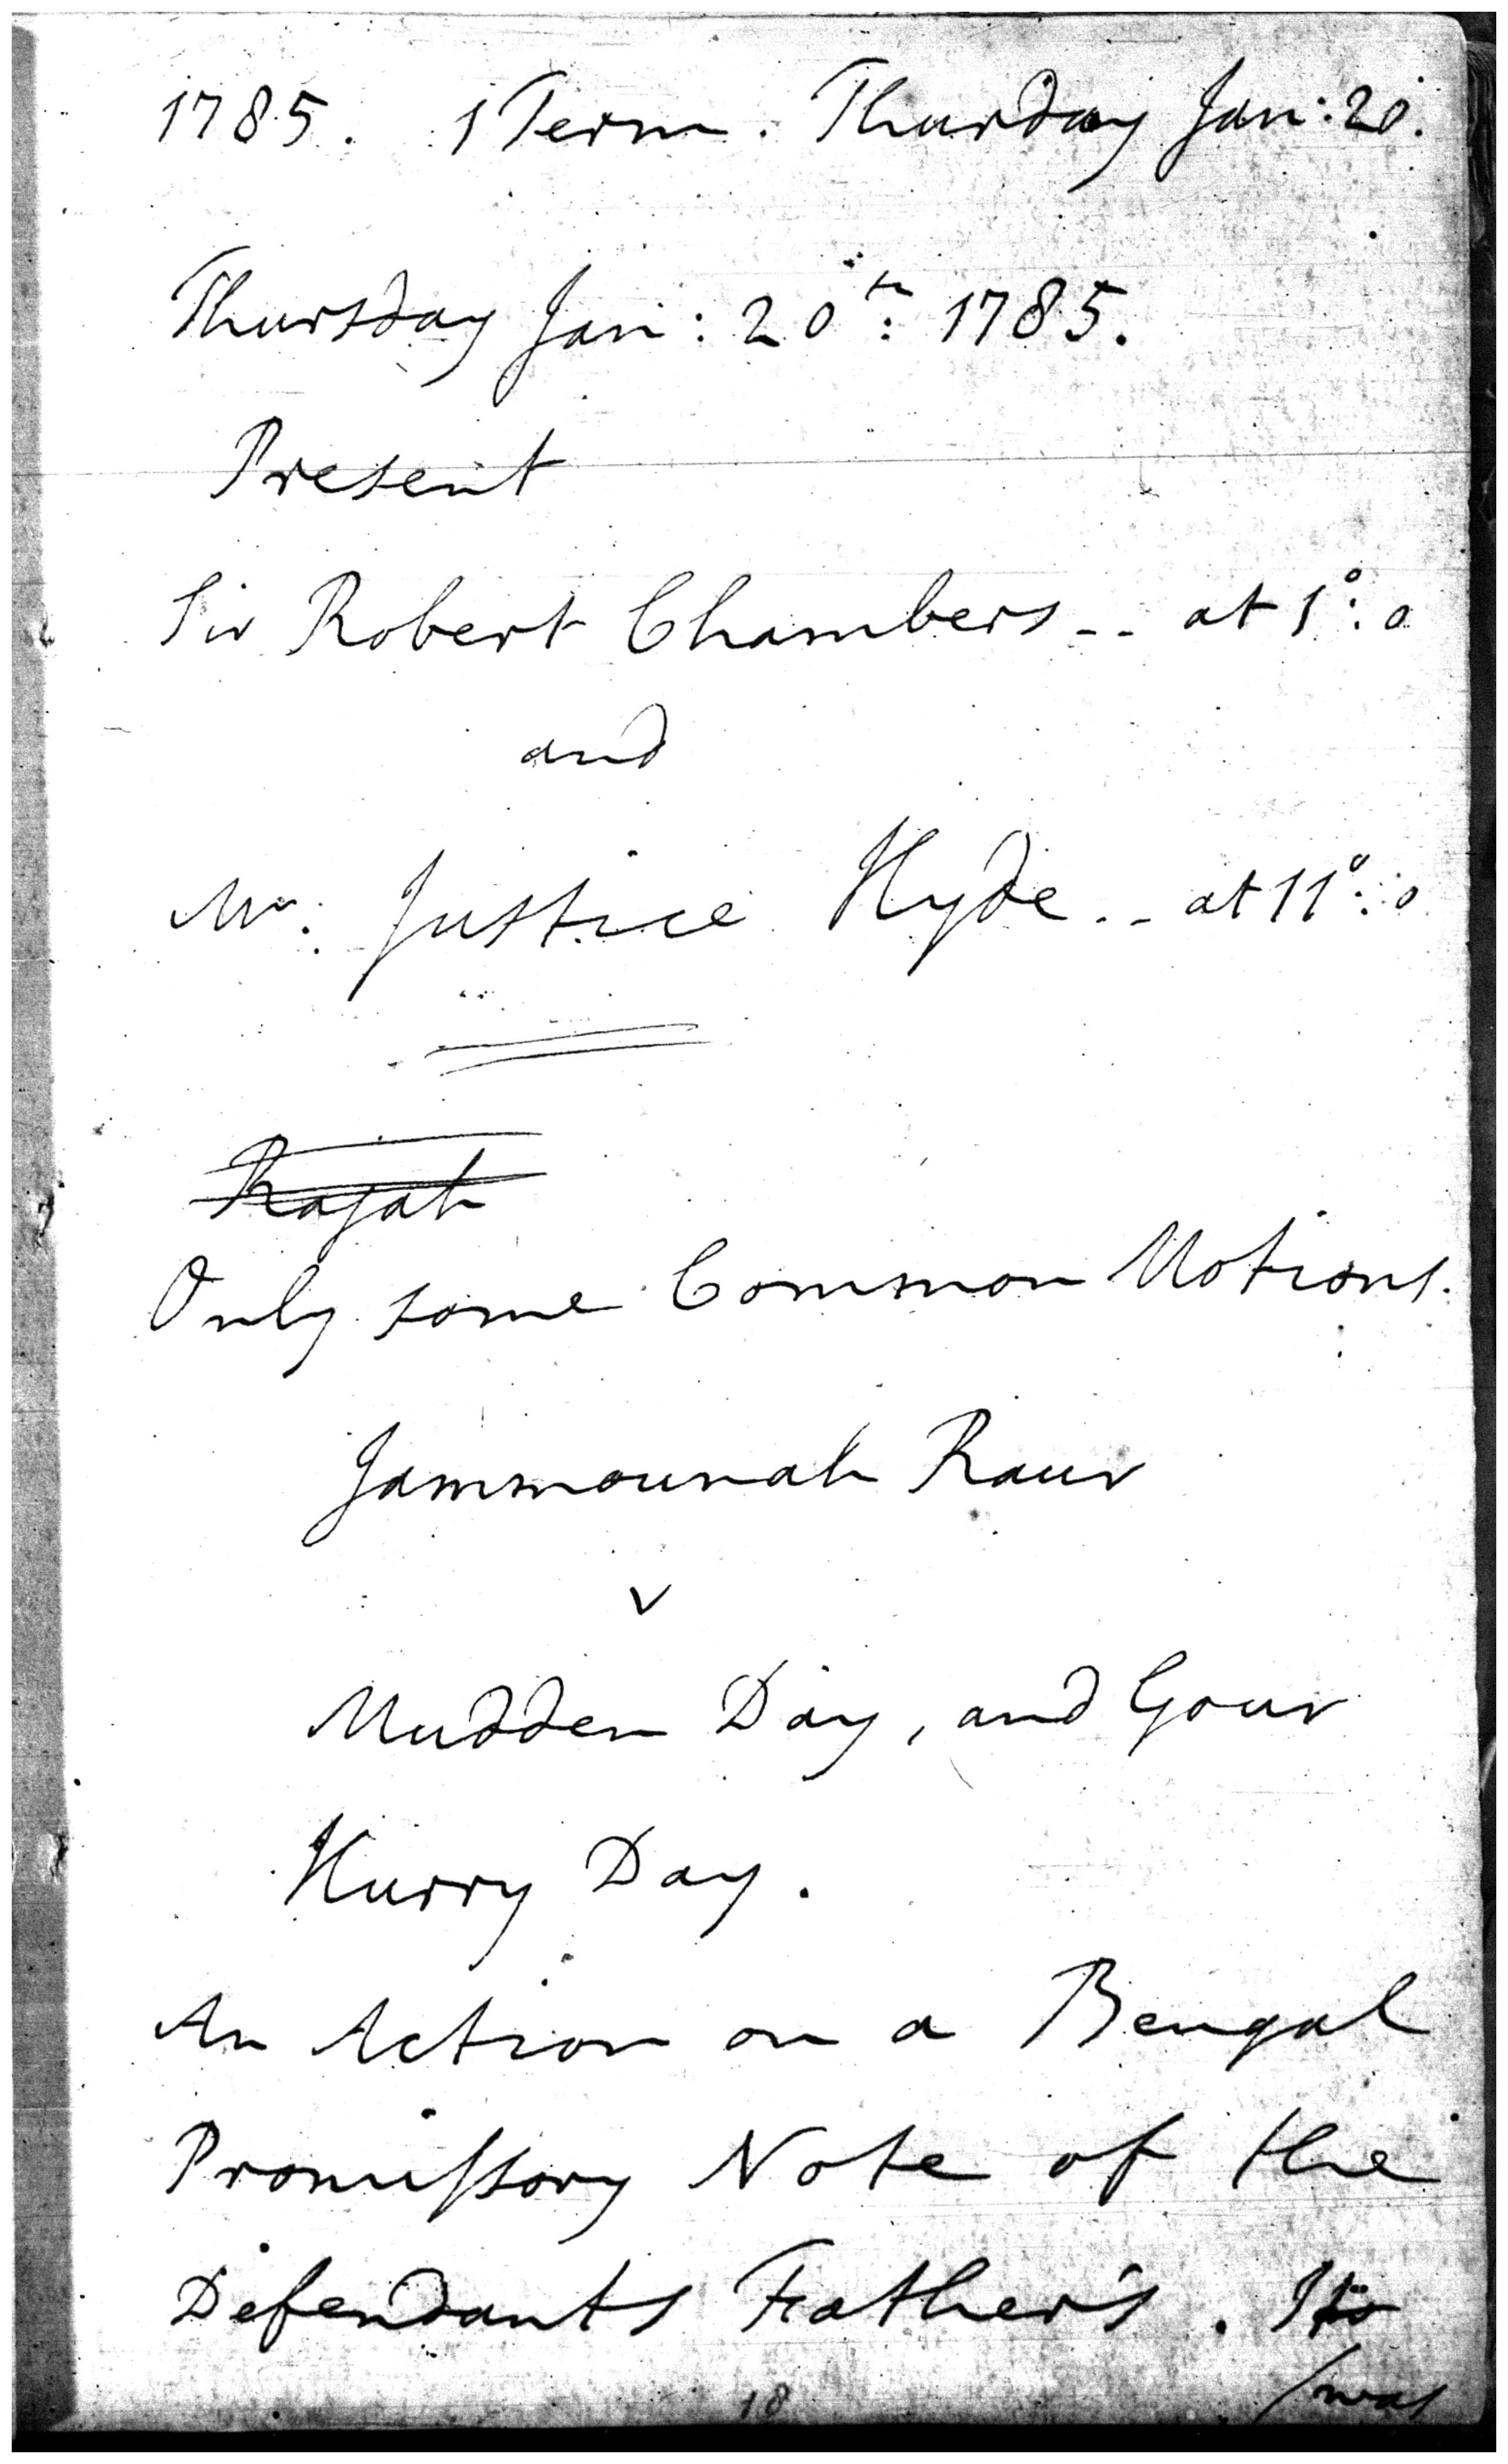 1785. 1 Term. Thursday Jan: 20.
Thursday Jan: 20th: 1785.
Present
Sir Robert Chambers -- at 1°: 0
and
Mr. Justice Hyde -- at 11°: 0
Rajah
Only some Common Motions.
Jammounah Raur
v
Mudden Day, and Gour
Hurry Day.
An Action on a Bengal
Promissory Note of the
Defendants Father's. It
/was
18